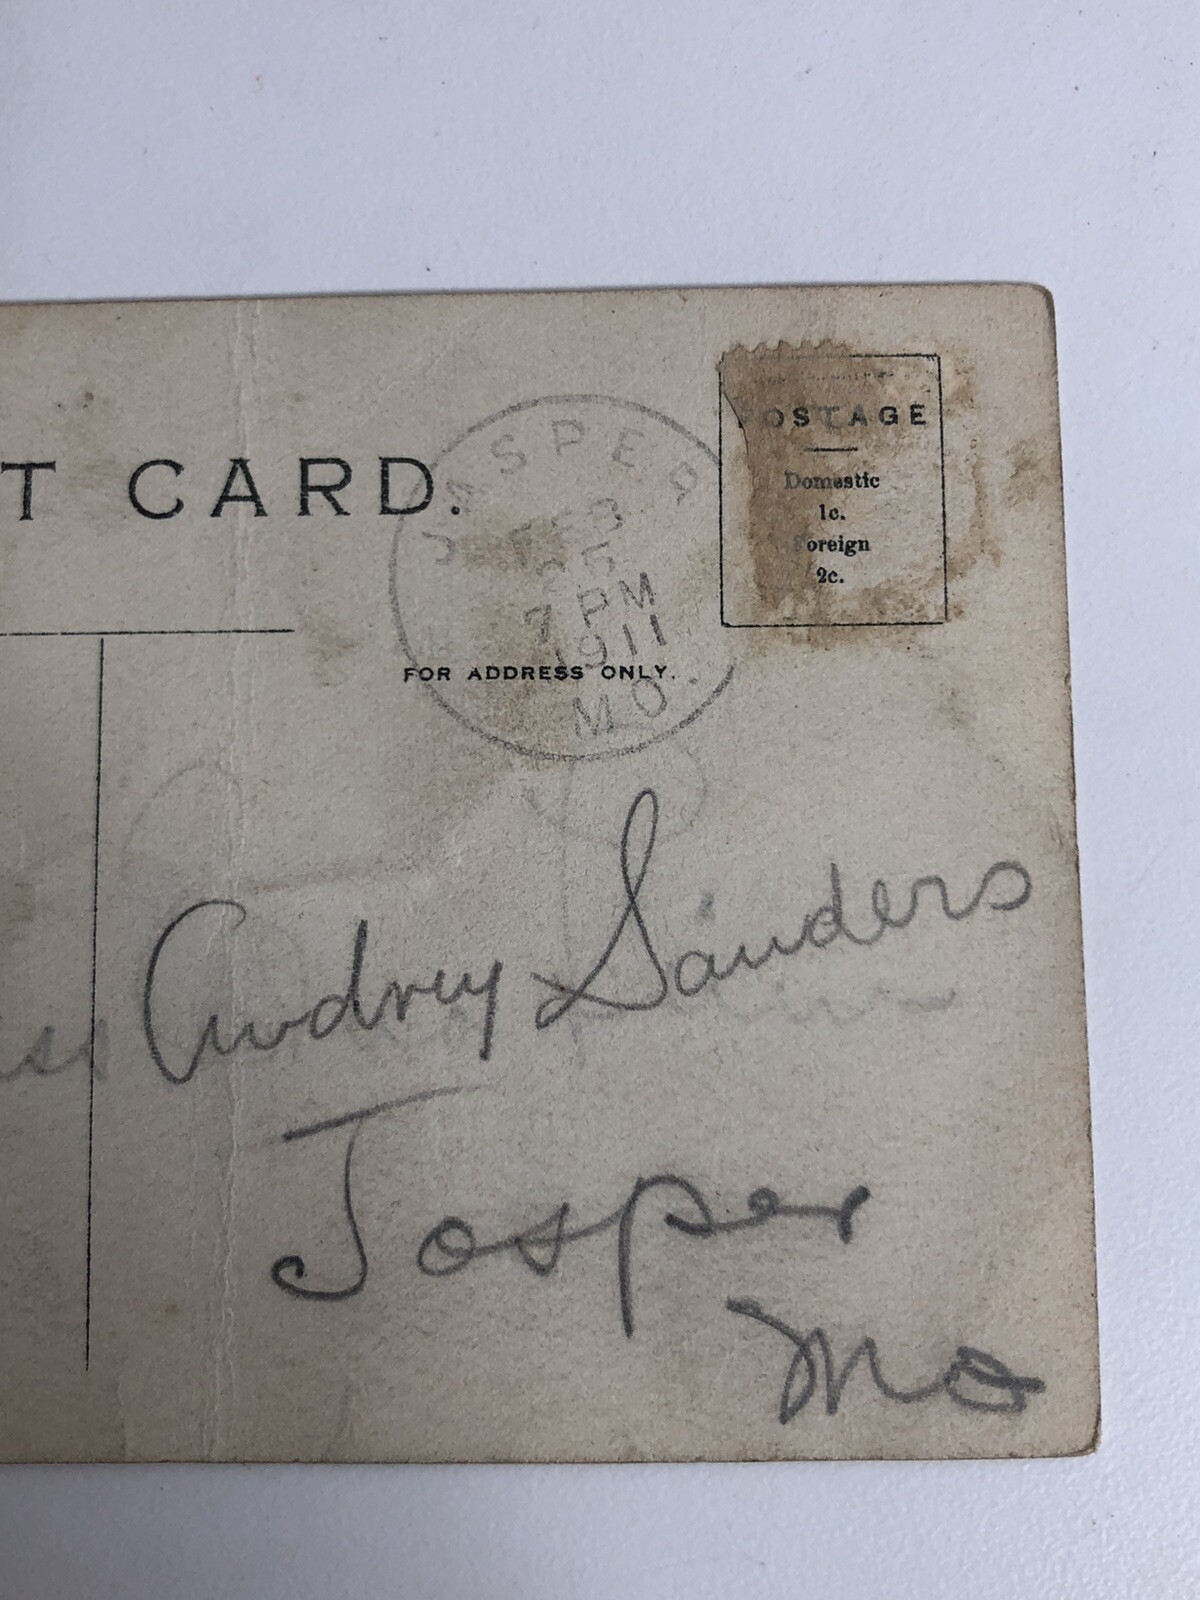 T CARD.
JASPER
FEB
25
7 PM
1911
MO.
POSTAGE
Domestic
1c.
Foreign
2c.
FOR ADDRESS ONLY.
Audrey Sanders
Jasper
Mo